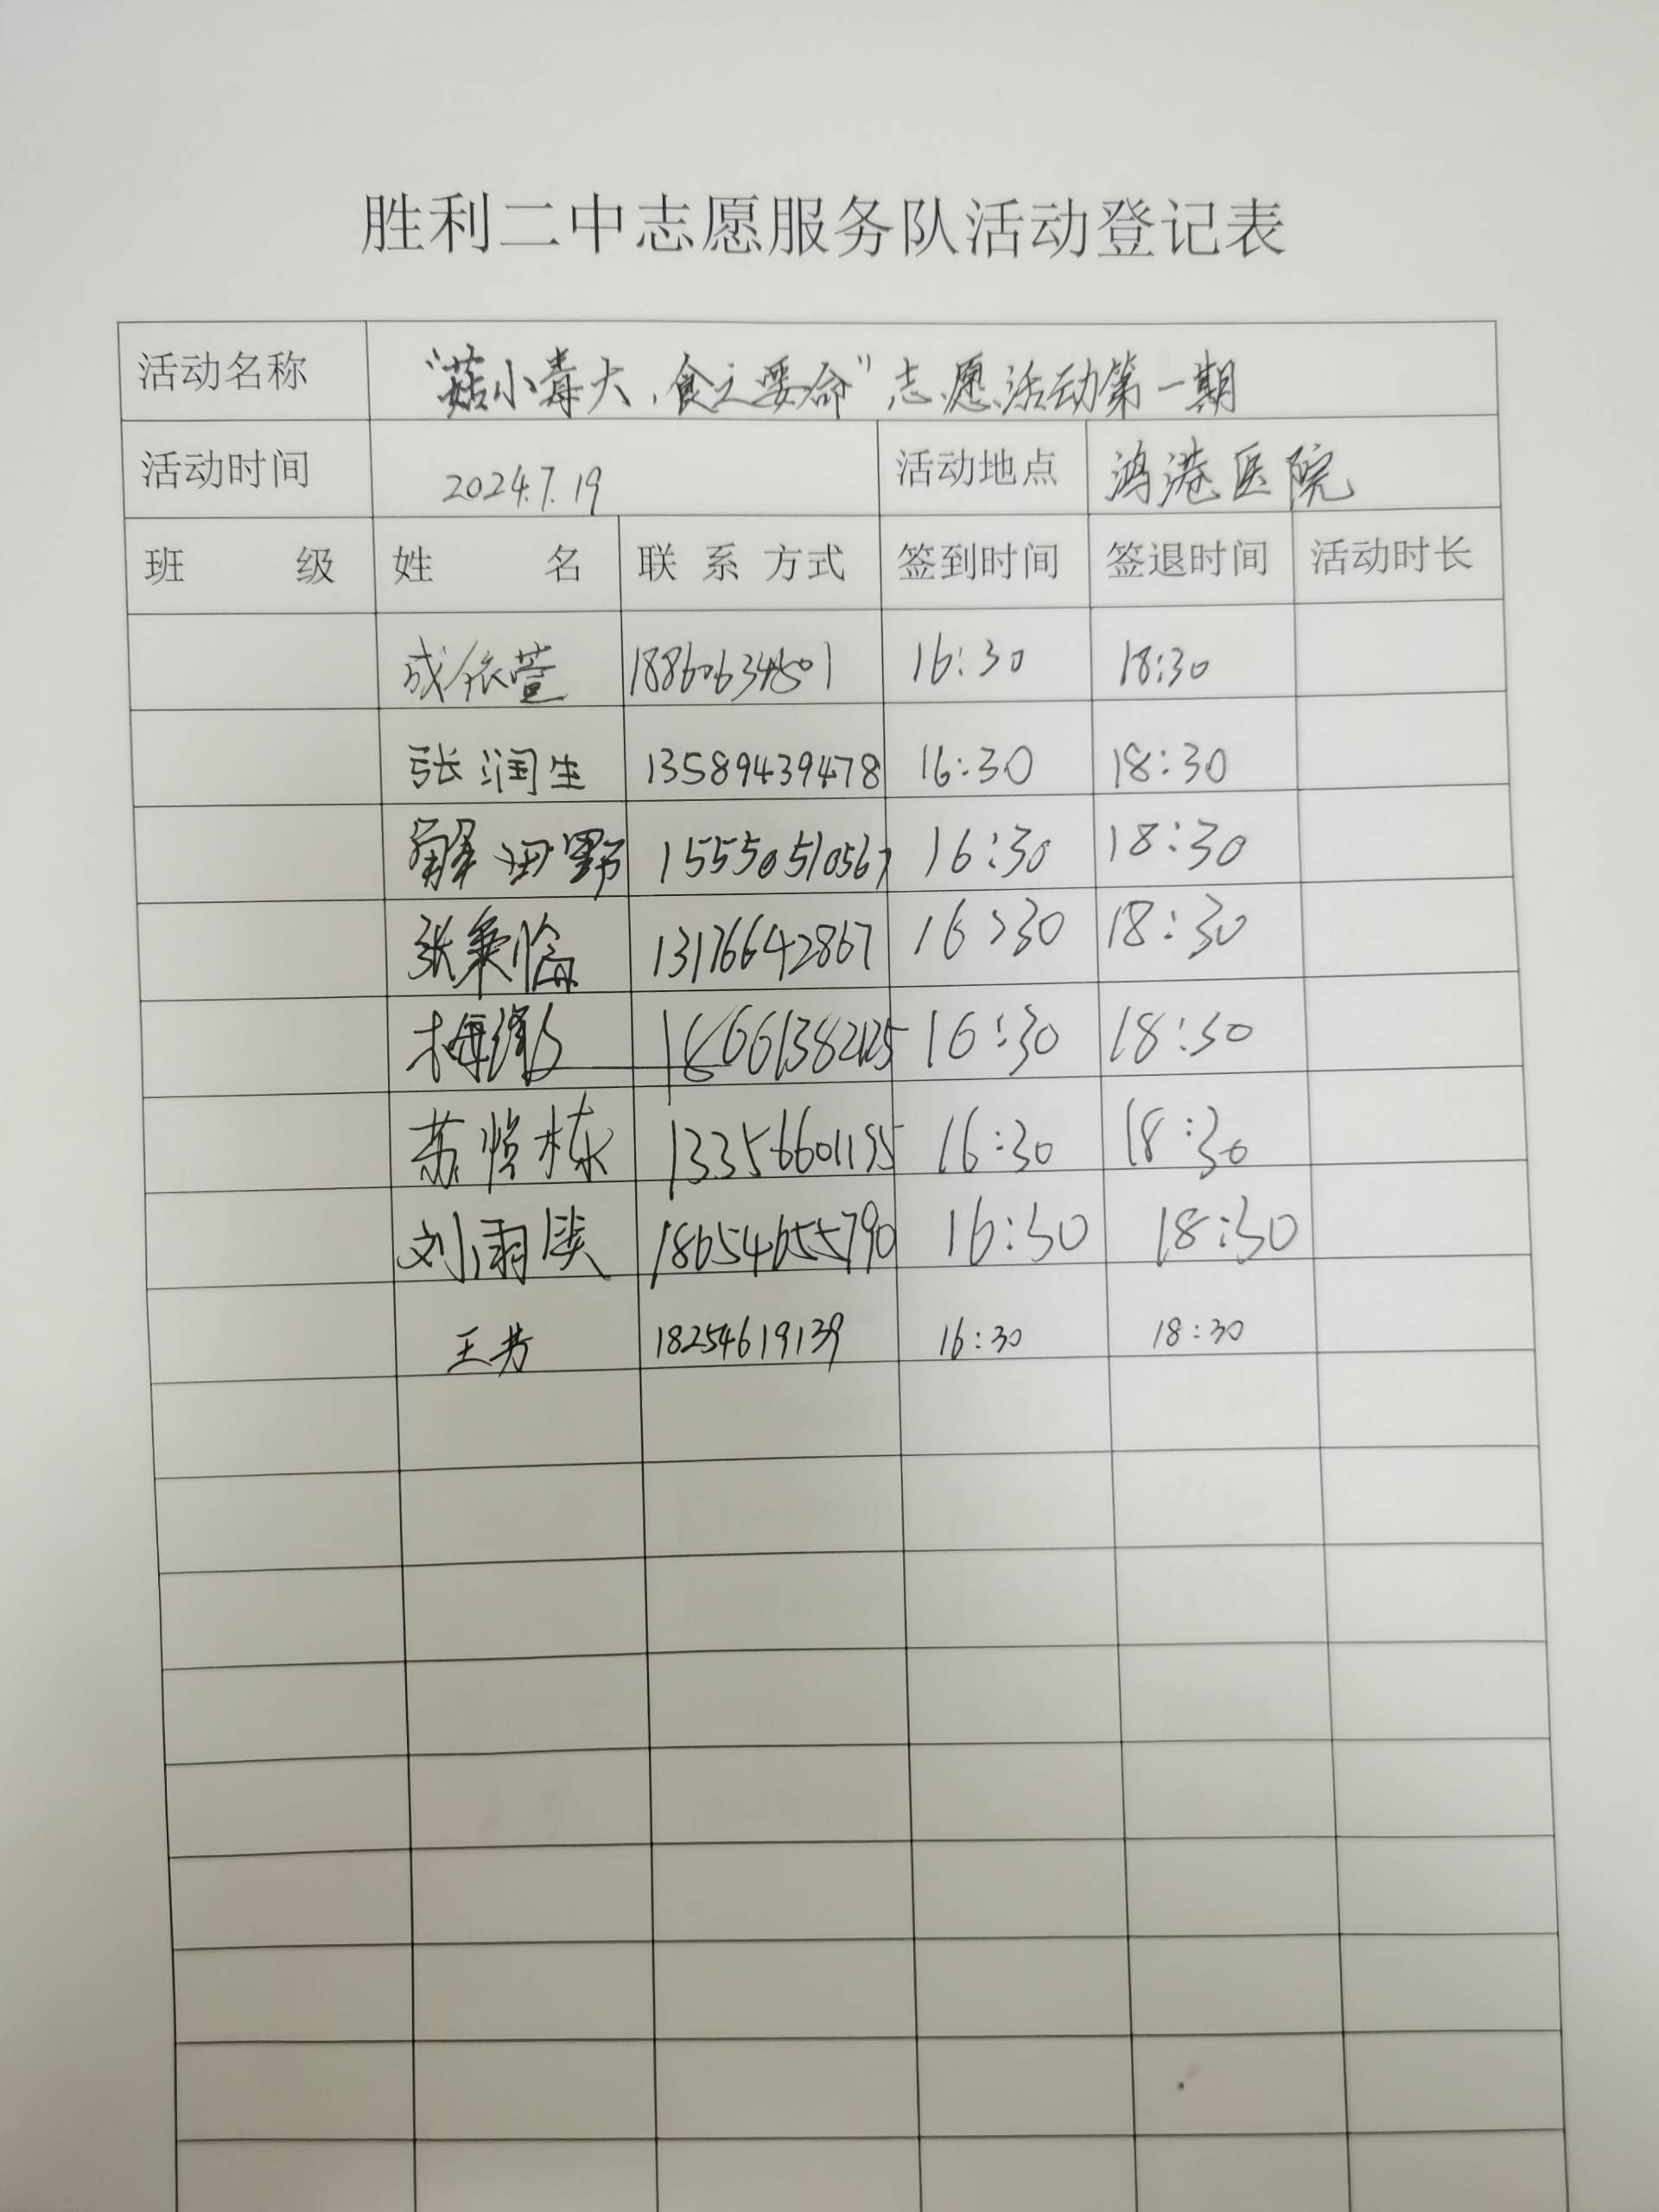 胜利二中志愿服务队活动登记表
活动名称 “菇小毒大,食之要命”志愿活动第一期
活动时间 2024.7.19 活动地点 鸿港医院
班 级 姓 名 联系方式 签到时间 签退时间 活动时长
成依萱 18860634801 16:30 18:30
张润生 13589439478 16:30 18:30
解田野 15550510567 16:30 18:30
张秉临 13176642867 16:30 18:30
梅 18661382125 16:30 18:30
苏悦栋 13356601195 16:30 18:30
刘雨瑛 18654655790 16:30 18:30
王芳 18254619139 16:30 18:30